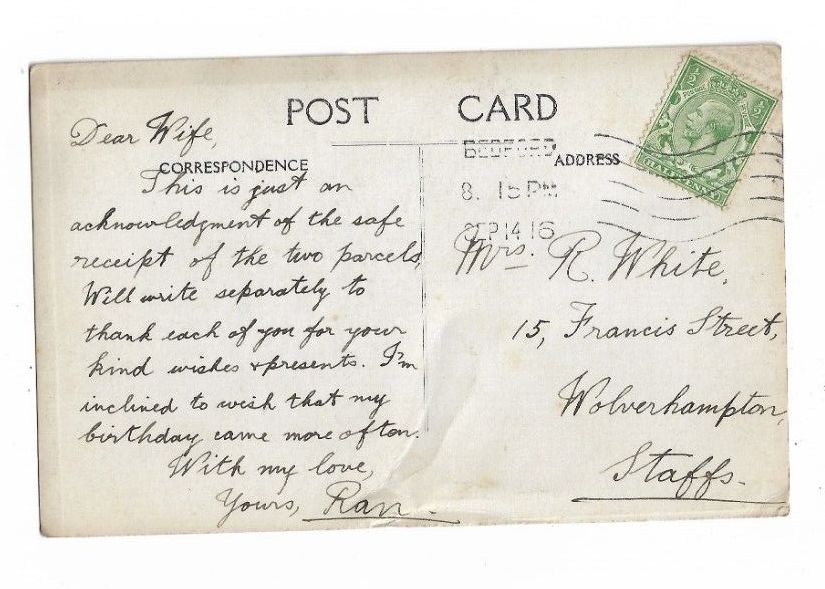 POST CARD
CORRESPONDENCE
ADDRESS
BEDFORD
8. 15 PM
SEP 14 16
Dear Wife,
This is just an
acknowledgment of the safe
receipt of the two parcels,
Will write separately to
thank each of you for your
kind wishes & presents. I'm
inclined to wish that my
birthday came more often.
With my love,
Yours, Ran.
Mrs. R. White,
15, Francis Street,
Wolverhampton,
Staffs.